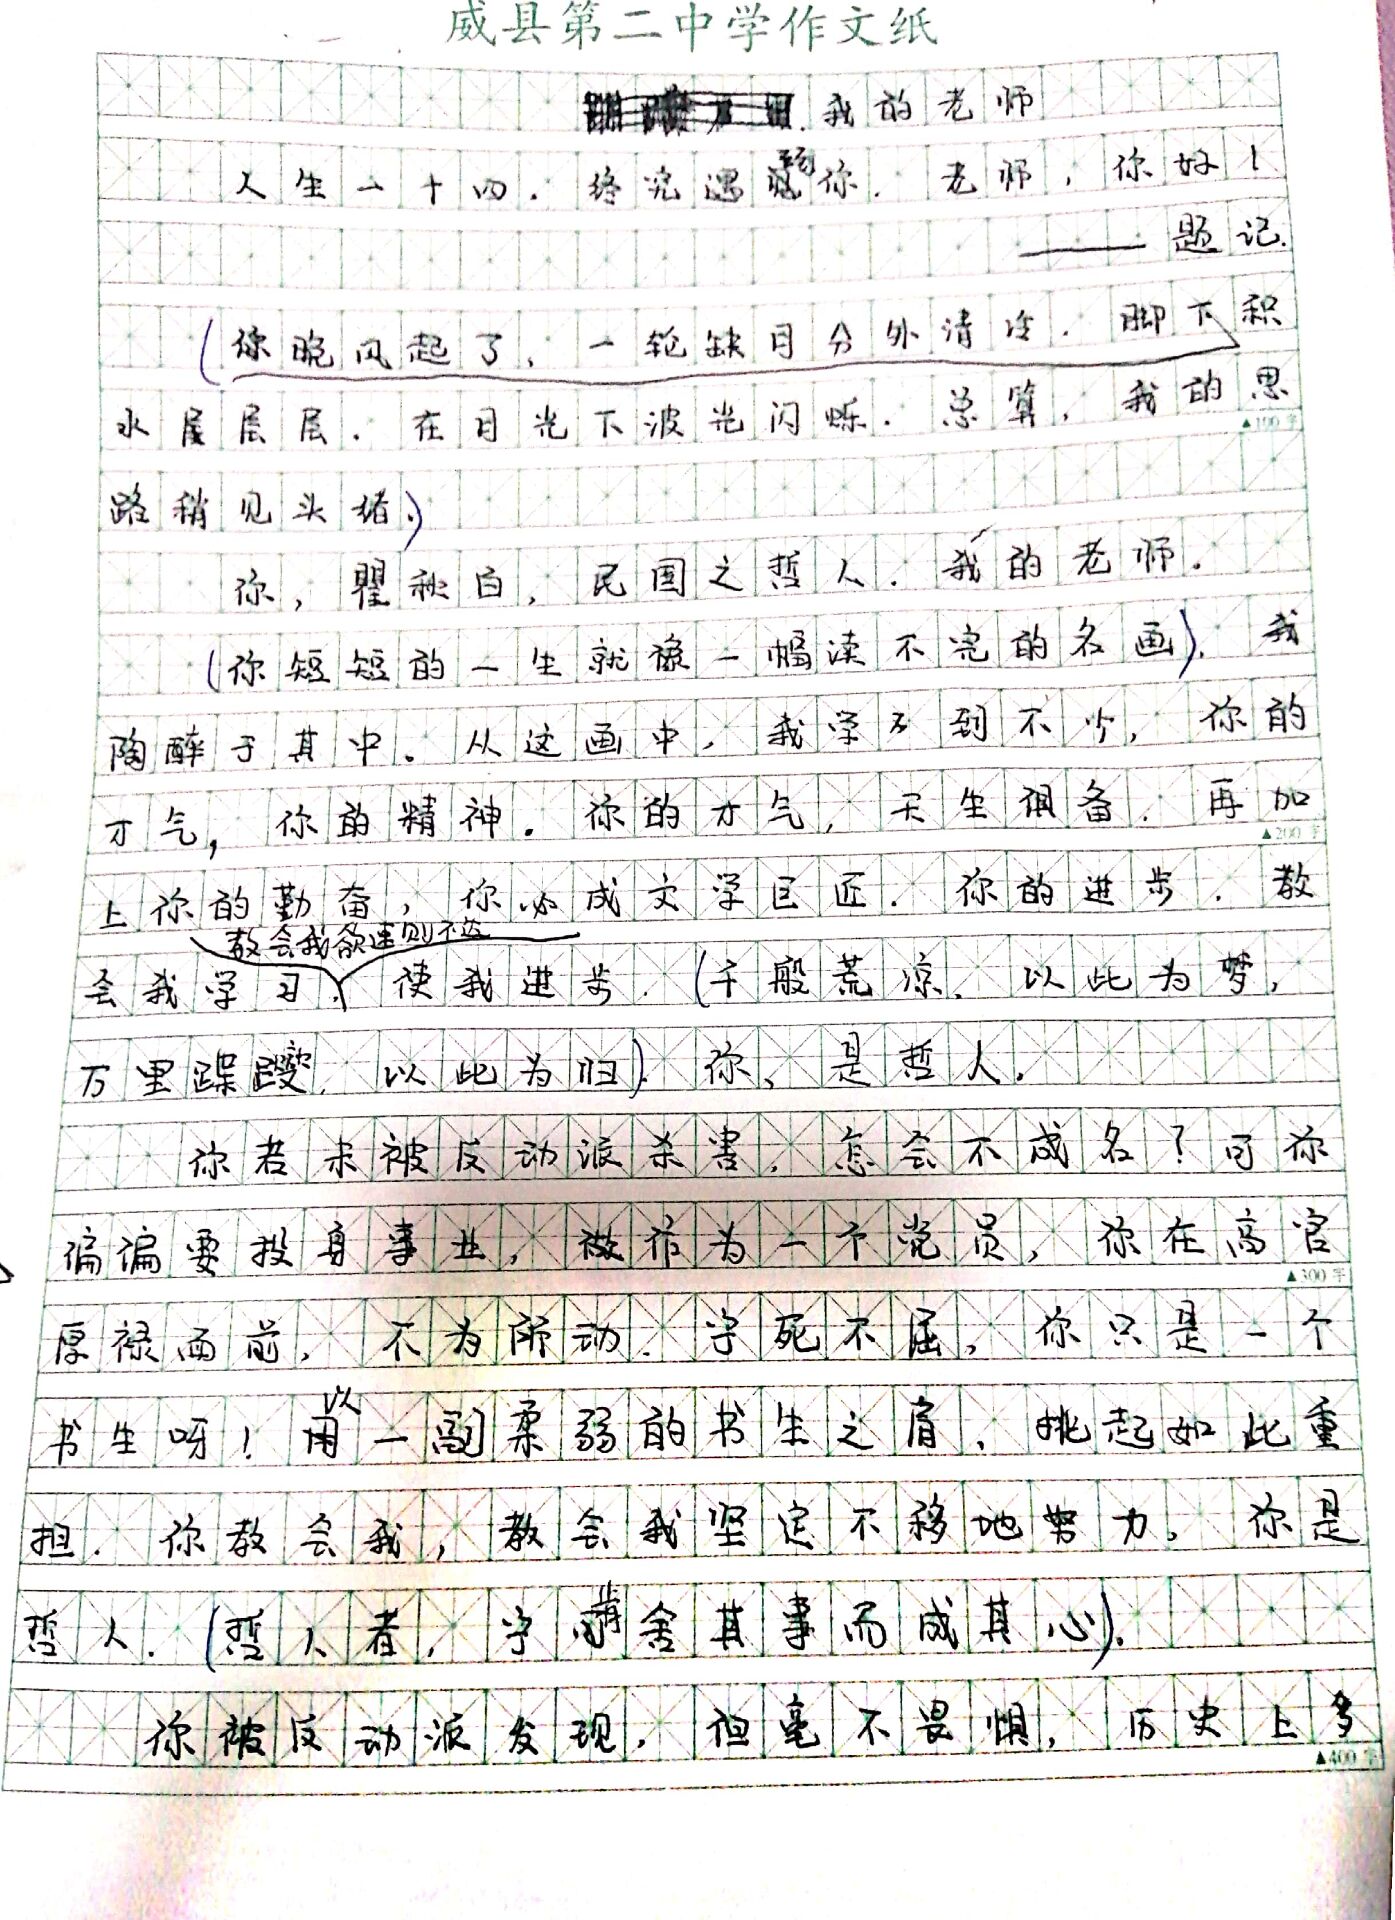 威县第二中学作文纸
我的老师
人生一十四.终究遇你.老师,你好!
——题记.
(你晚风起了,一轮缺月分外清冷.脚下积
水层层层.在月光下波光闪烁.总算,我的思
▲100字
路稍见头绪.)
你,瞿秋白,民国之哲人.我的老师.
(你短短的一生就像一幅读不完的名画).我
陶醉于其中.从这画中,我学不到不少,你的
才气,你的精神.你的才气,天生俱备.再加
▲200字
上你的勤奋,你必成文学巨匠.你的进步.教
教会我欲速则不达
会我学习,使我进步.(千般荒凉,以此为梦,
万里蹀躞,以此为归).你,是哲人.
你若未被反动派杀害,怎会不成名?可你
偏偏要投身事业,做作为一个党员,你在高官
▲300字
厚禄面前,不为所动.宁死不屈,你只是一个
书生呀!用以一副柔弱的书生之肩,挑起如此重
担.你教会我,教会我坚定不移地努力,你是
哲人.(哲人者,宁肯舍其事而成其心).
你被反动派发现,但毫不畏惧,历史上多
▲400字